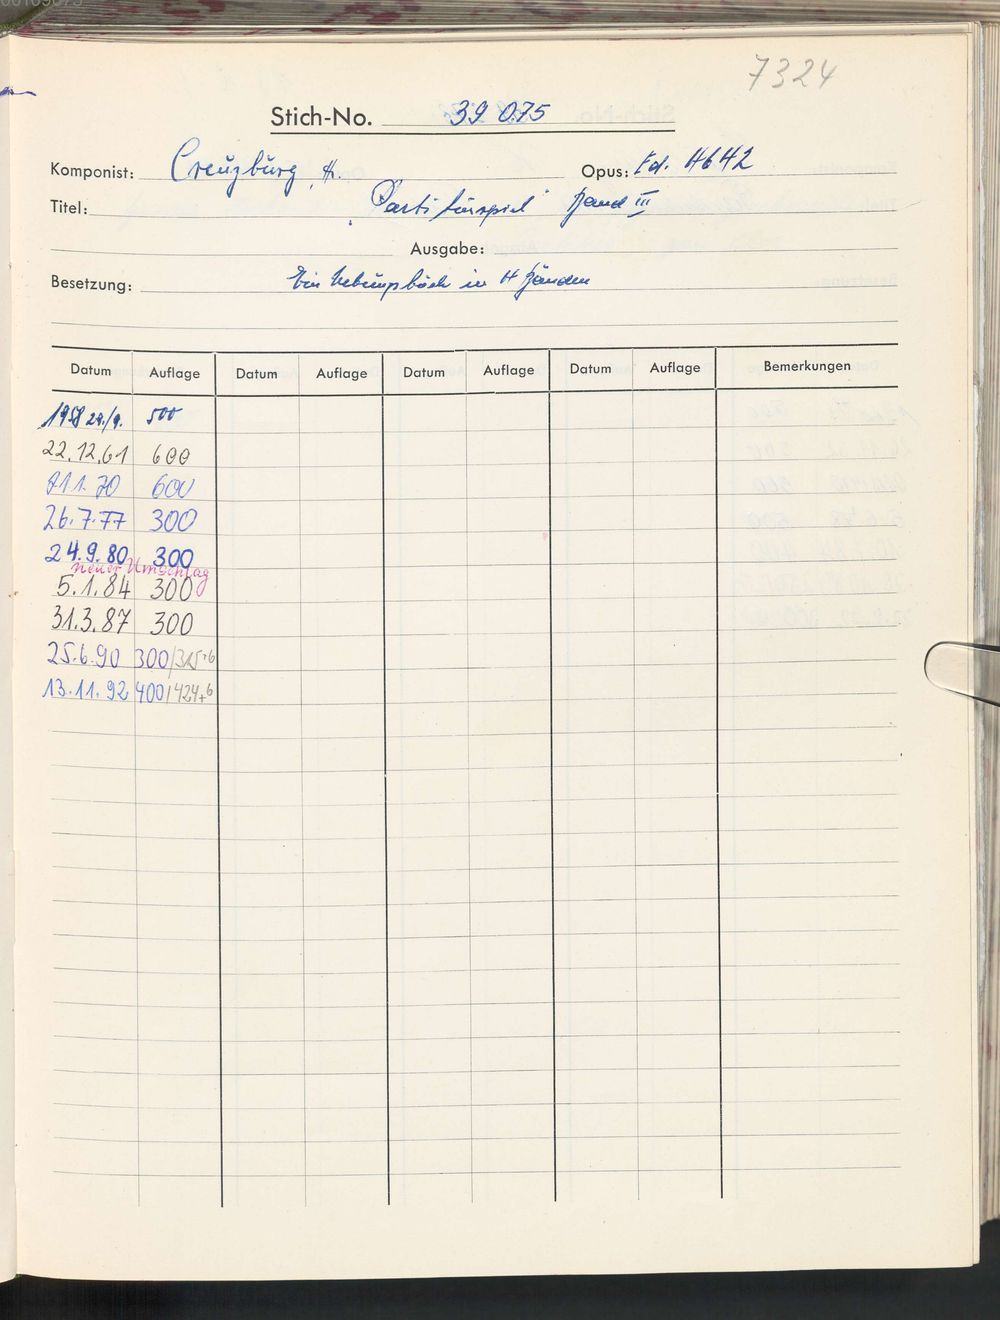 7324
Stich-No. 39 075
Komponist: Creuzburg, H. Opus: Ed. 4642
Titel: Partiturspiel Band III
Ausgabe:
Besetzung: Ein Uebungsbuch in 4 Bänden
Datum Auflage Datum Auflage Datum Auflage Datum Auflage Bemerkungen
1958 29./9. 500
22.12.61 600
600
26.7.77 300
24.9.80 300
neuer Umschlag
5.1.84 300
31.3.87 300
25.6.90 300/325+6
13.11.92 400/424+6